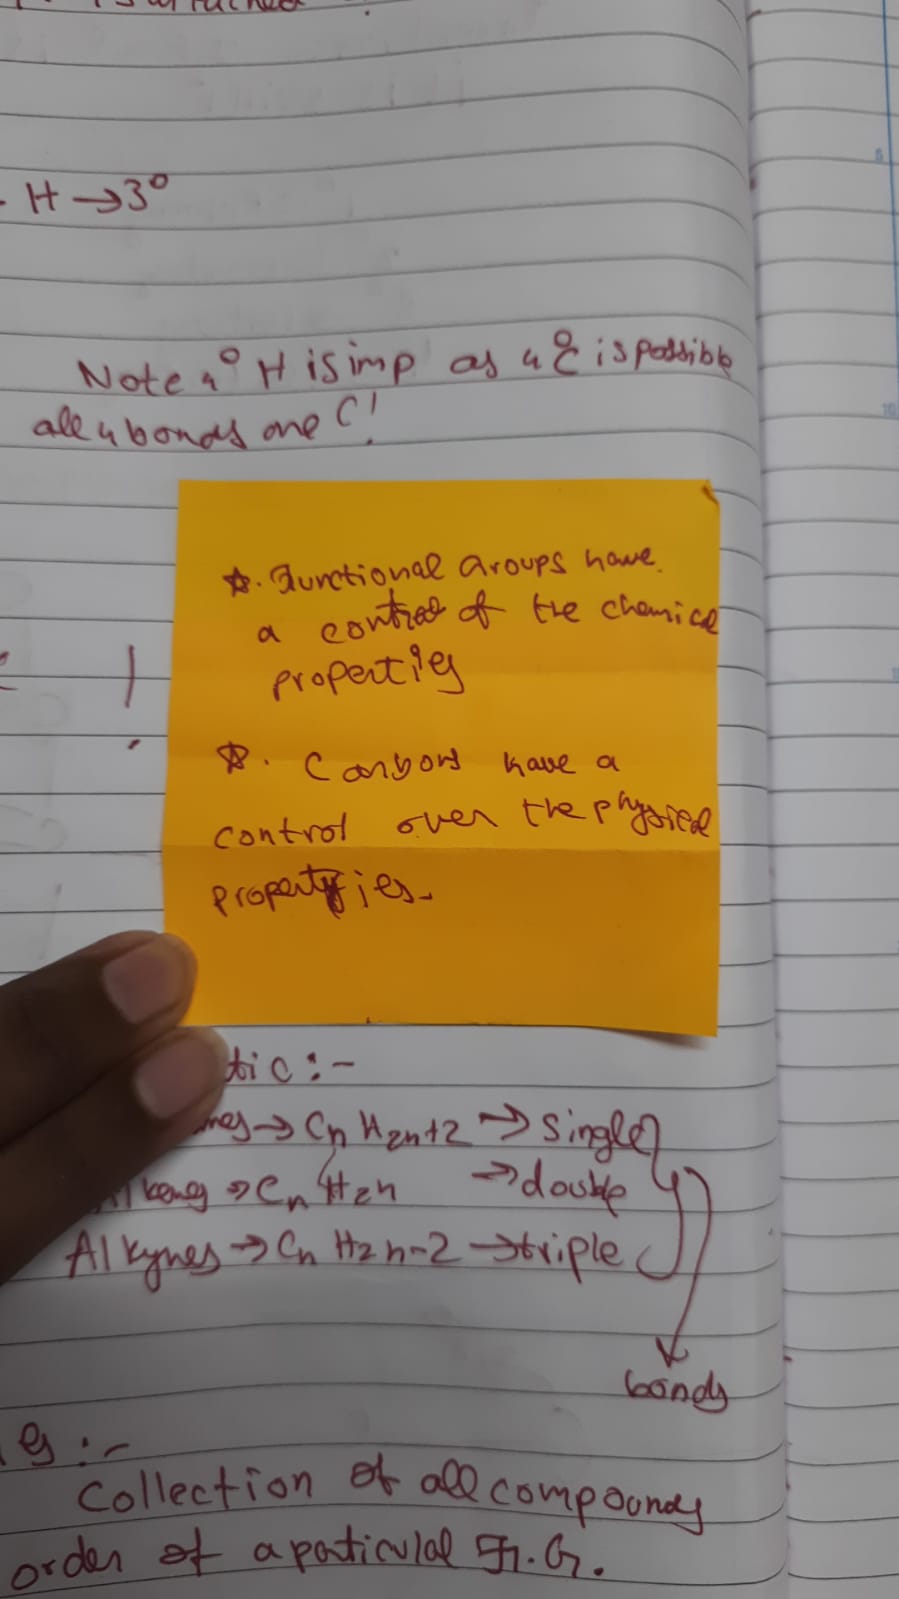 - H → 3°
Note 4° H is imp as 4° C is possible
all 4 bonds one C!
☆. Functional Groups have
a control of the chemical
properties
☆. Carbons have a
control over the physical
properties.
tic :-
nes → CnH2n+2 → single
Alkenes → CnH2n → double
Alkynes → CnH2n-2 → triple
bonds
es :-
Collection of all compounds
order of a paticulal F.G.